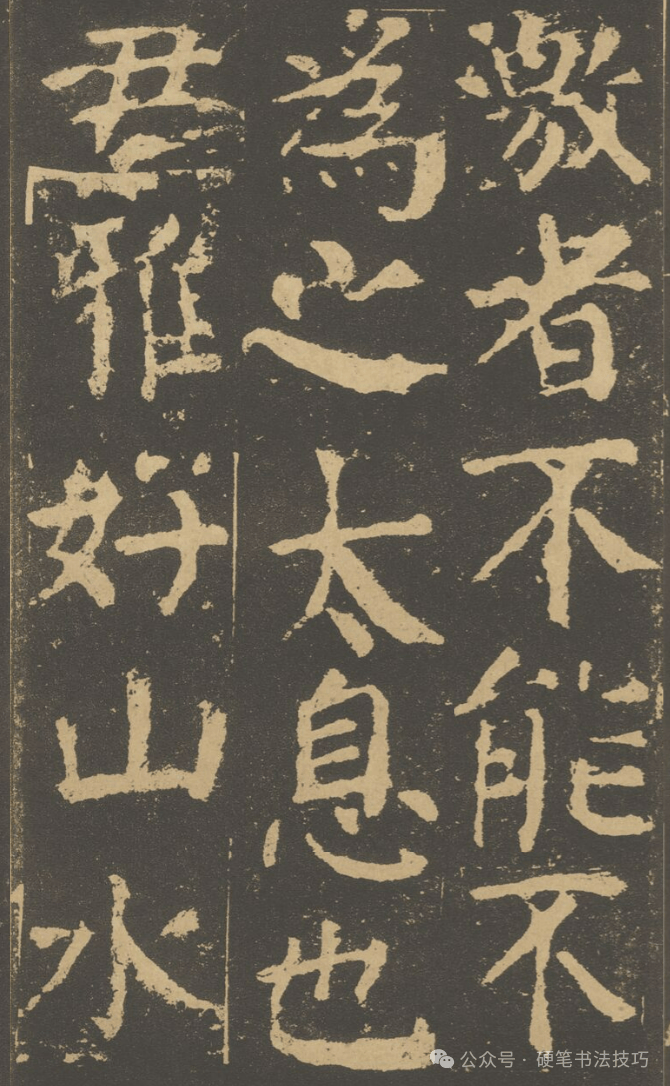 激者不能不
為之太息也
君雅好山水
公众号·硬笔书法技巧